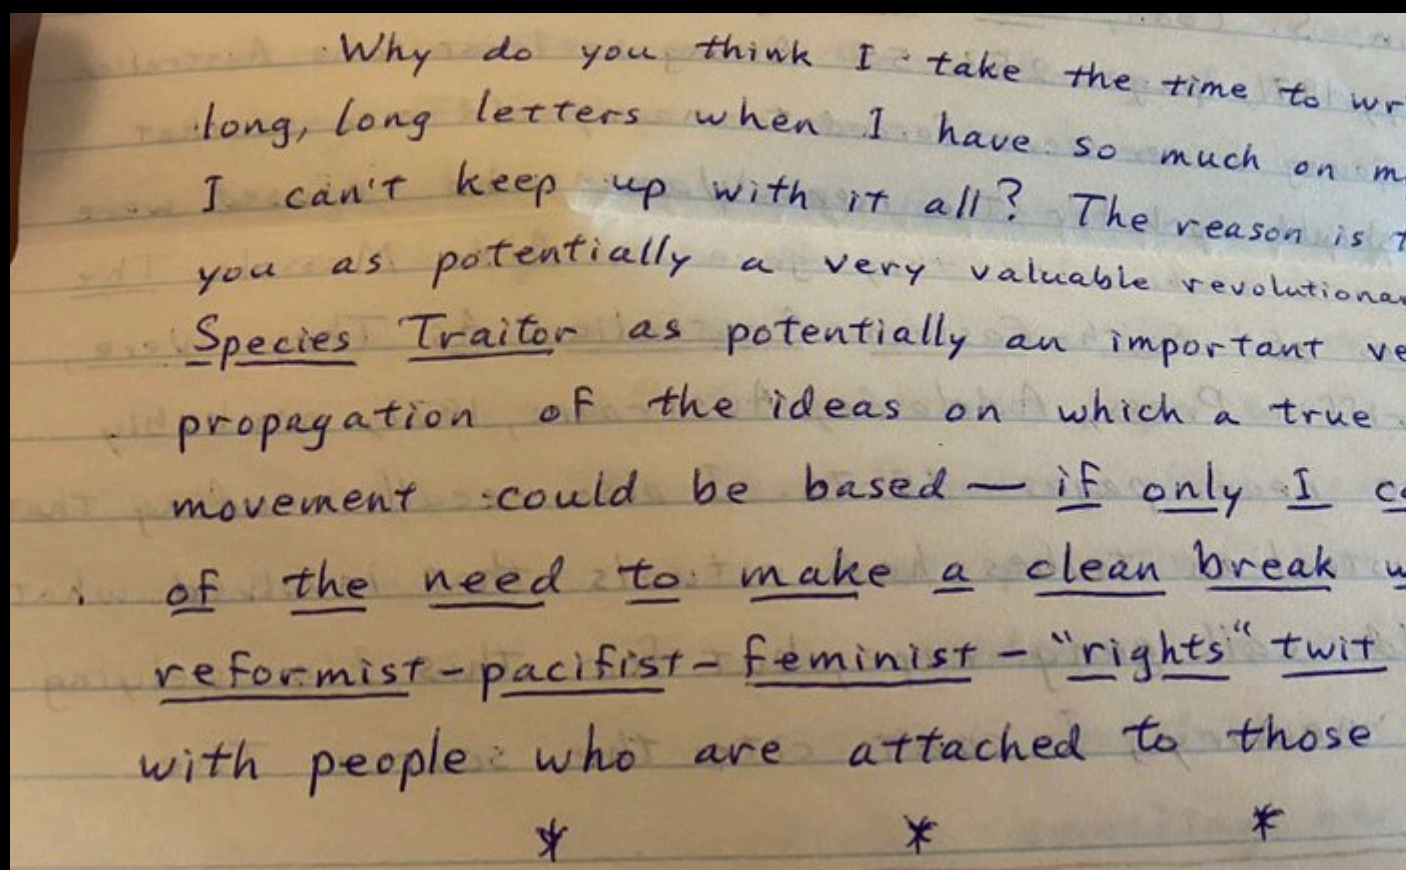 Why do you think I take the time to wr
long, long letters when I have so much on m
I can't keep up with it all? The reason is t
you as potentially a very valuable revolutionar
Species Traitor as potentially an important ve
propagation of the ideas on which a true
movement could be based — if only I co
of the need to make a clean break w
reformist-pacifist-feminist-"rights" twit
with people who are attached to those
* * *